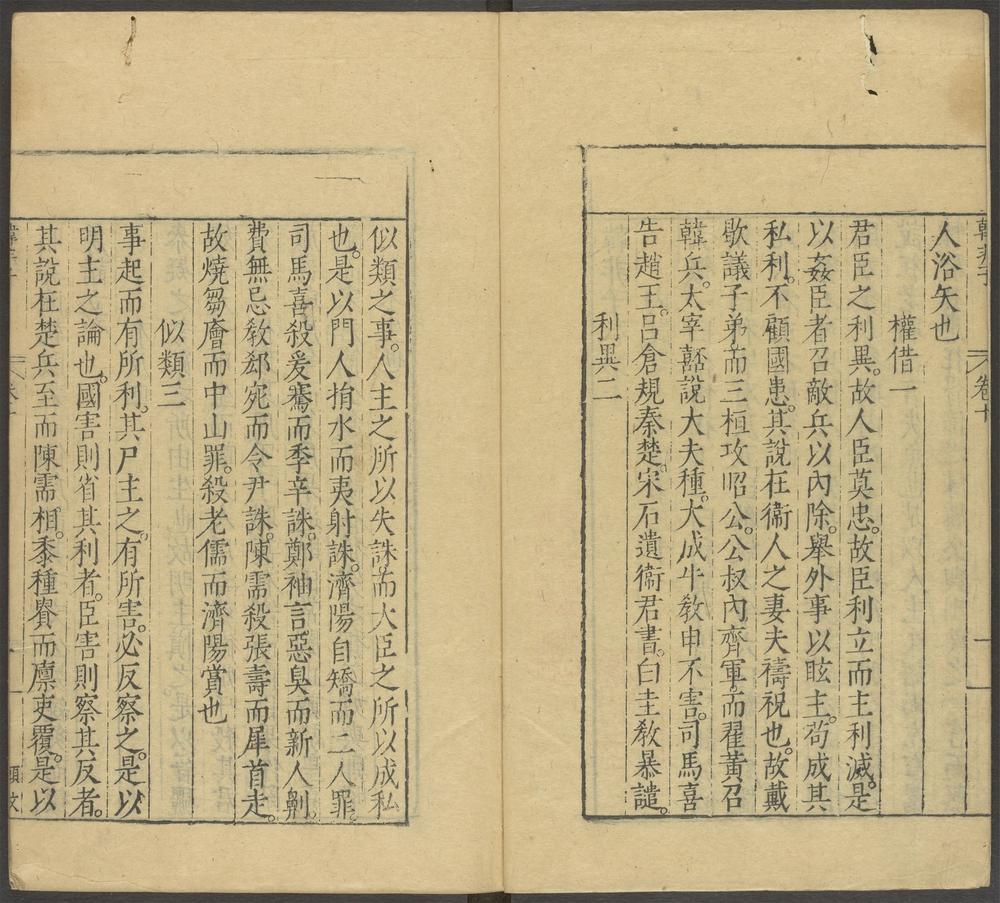 韓非子 卷十
人浴矢也
權借一
君臣之利異。故人臣莫忠。故臣利立而主利滅。是
以姦臣者召敵兵以內除。舉外事以眩主。苟成其
私利。不顧國患。其說在衞人之妻夫禱祝也。故戴
歇議子弟而三桓攻昭公。公叔內齊軍。而翟黃召
韓兵。太宰嚭說大夫種。大成牛敎申不害。司馬喜
告趙王。呂倉規秦楚。宋石遺衞君書。白圭敎暴譴。
利異二
似類之事。人主之所以失誅而大臣之所以成私
也。是以門人捐水而夷射誅。濟陽自矯而二人罪
司馬喜殺爰騫而季辛誅。鄭袖言惡臭而新人劓。
費無忌敎郄宛而令尹誅。陳需殺張壽而犀首走。
故燒芻廥而中山罪。殺老儒而濟陽賞也
似類三
事起而有所利。其尸主之。有所害。必反察之。是以
明主之論也。國害則省其利者。臣害則察其反者。
其說在楚兵至而陳需相。黍種貴而廩吏覆。是以